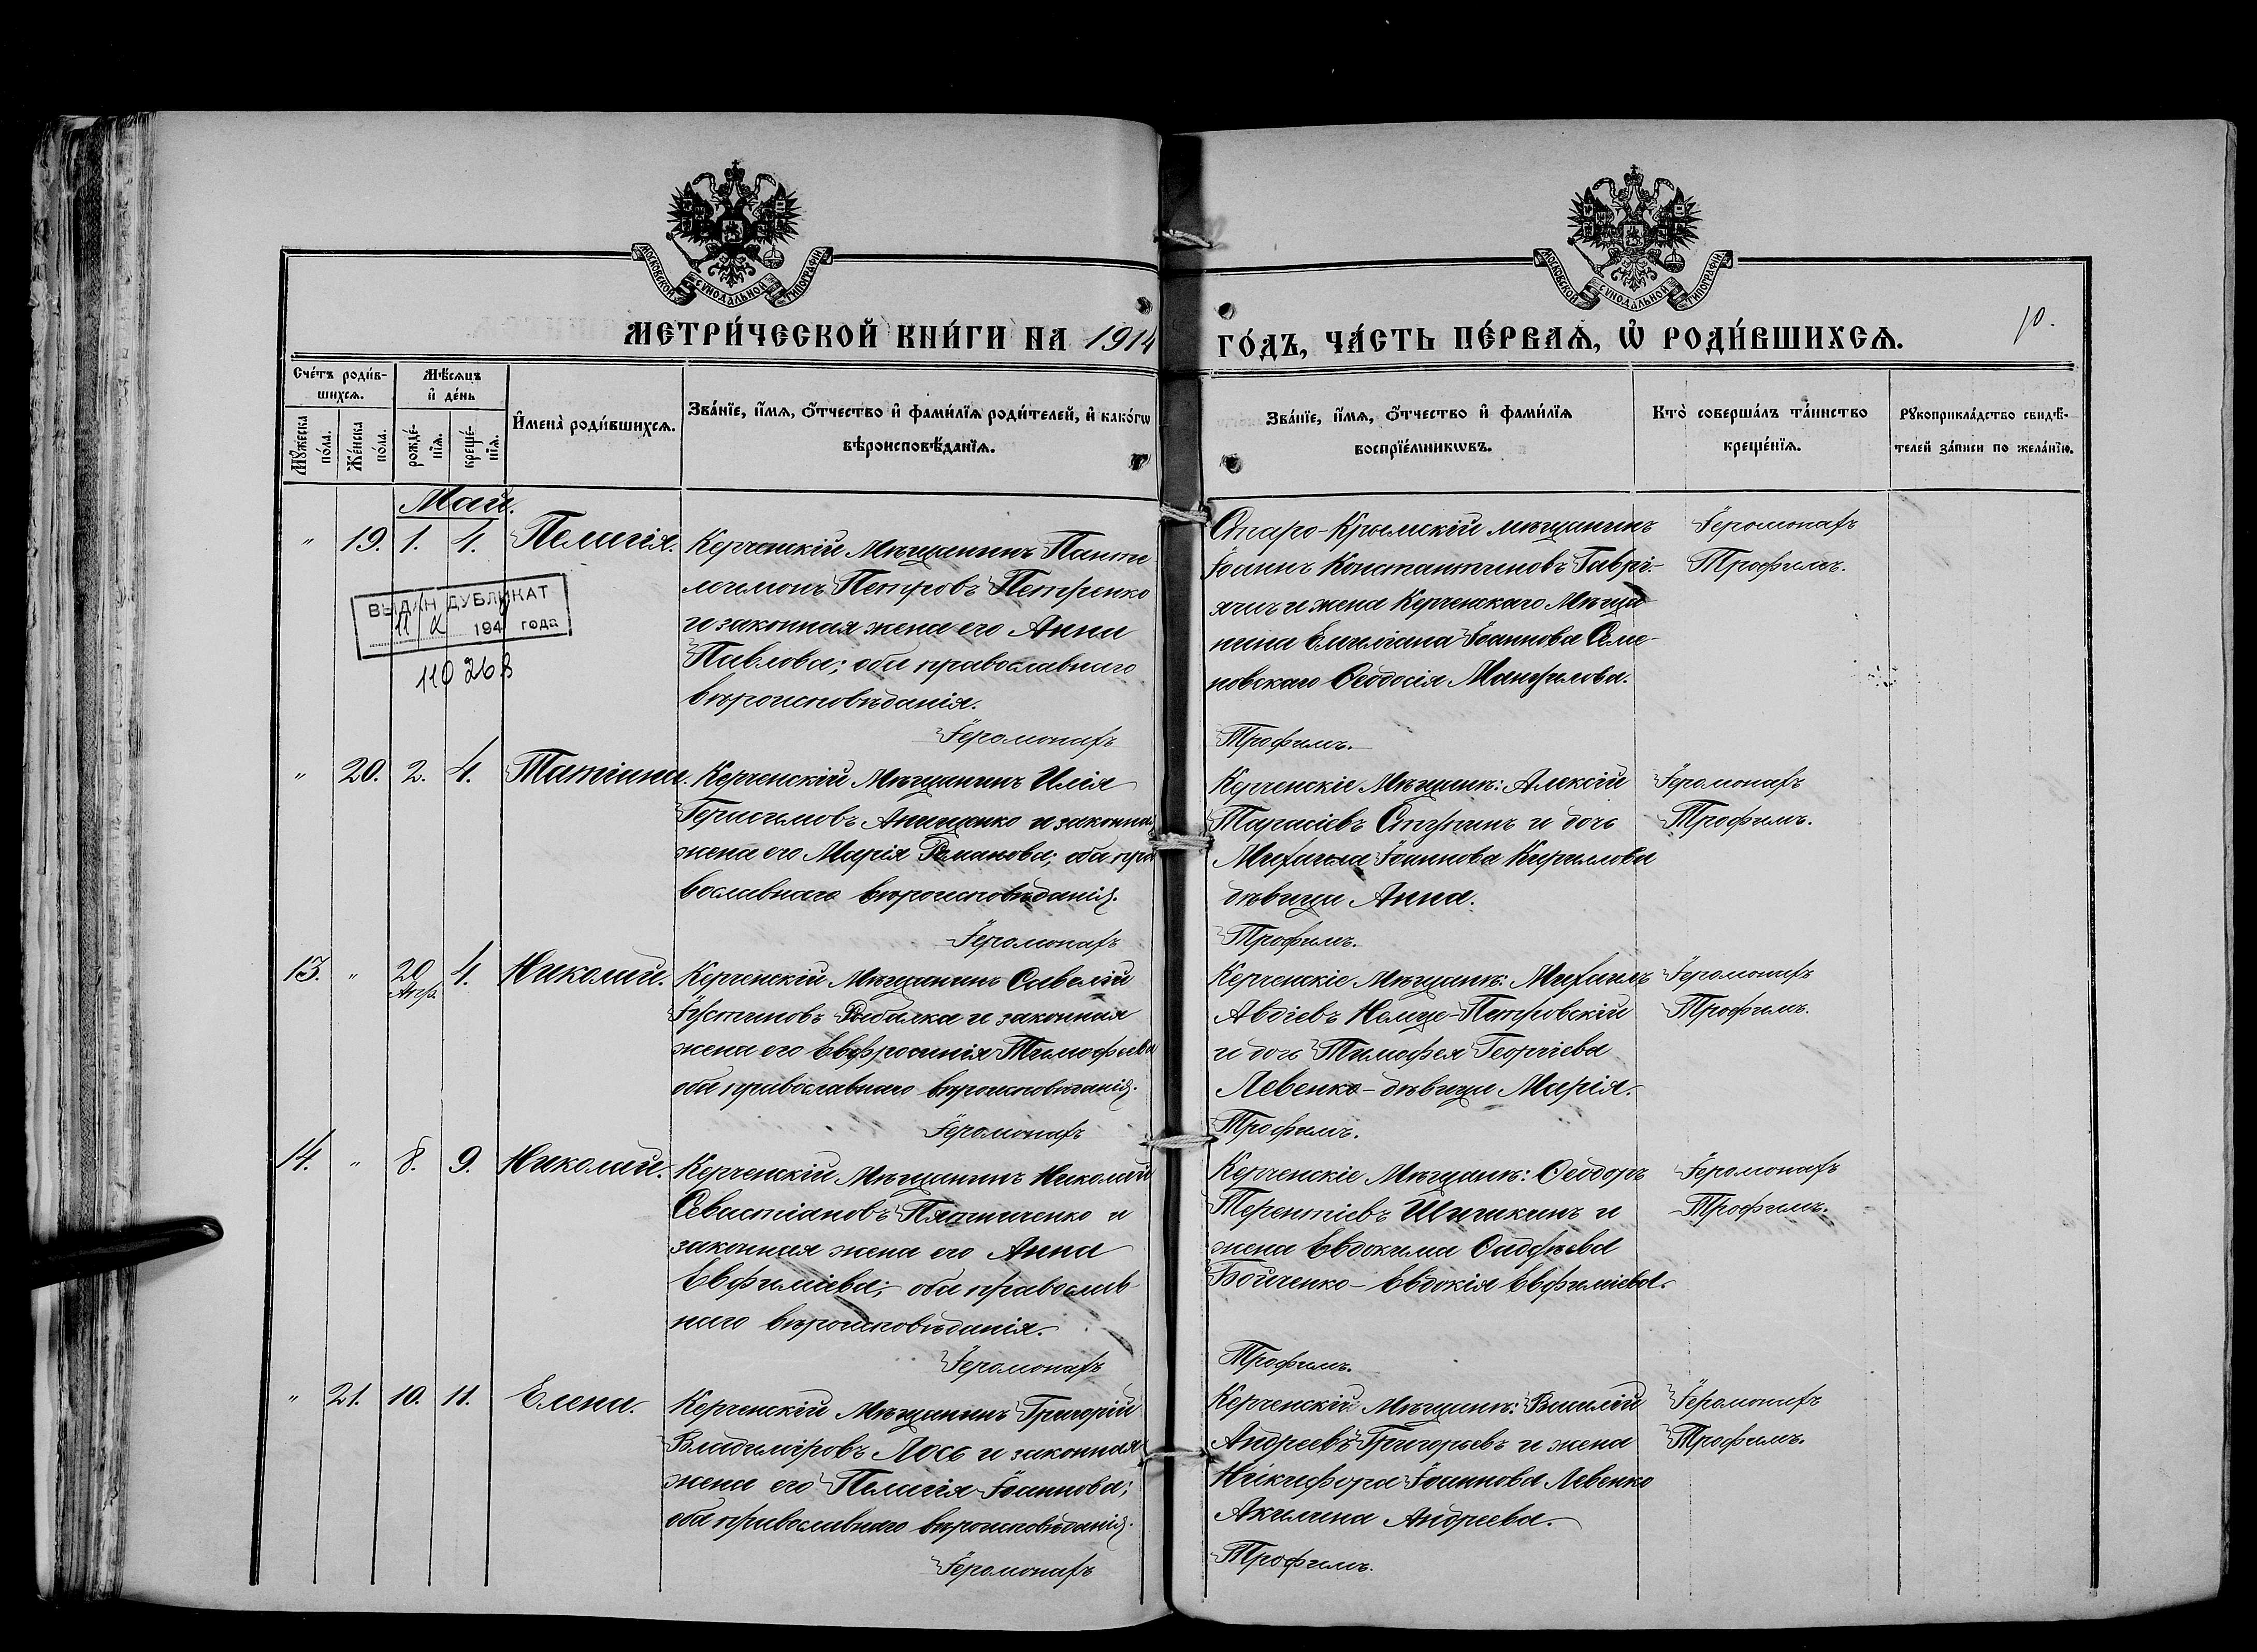 МОСКОВСКОЙ СѴНОДАЛЬНОЙ ТИПОГРАФІИ
МОСКОВСКОЙ СѴНОДАЛЬНОЙ ТИПОГРАФІИ
МЕТРИ́ЧЕСКОЙ КНИ́ГИ НА 1914
ГО́ДЪ, ЧА́СТЬ ПЕ́РВАѦ, Ѡ҆ РОДИ́ВШИХСѦ.
10.
Сче́тъ роди́в-
шихсѧ.
Мꙋ́жеска
по́ла.
Же́нска
по́ла.
Мѣ́сѧцъ
и҆ де́нь
рожде́-
нїѧ.
креще́-
нїѧ.
И҆мена̀ роди́вшихсѧ.
Зва́нїе, и҆́мѧ, ѻ҆́тчество и҆ фами́лїѧ роди́телей, и҆ како́гѡ
вѣроисповѣ́данїѧ.
Зва́нїе, и҆́мѧ, ѻ҆́тчество и҆ фами́лїѧ
воспрїе́мникѡвъ.
Кто̀ соверша́лъ та́инство
креще́нїѧ.
Рꙋкоприкла́дство свидѣ́-
телей за́писи по жела́нїю.
Май.
" 19. 1. 4. Пелагія.
Керченскій Мѣщанинъ Панте
леимонъ Петровъ Петренко
и законная жена его Анна
Павлова; оба православнаго
вѣроисповѣданія.
Іеромонахъ
Старо-Крымскій мѣщанинъ
Іоаннъ Константиновъ
и жена Керченскаго Мѣща
нина Емиліана Іоаннова Семе
новскаго Феодосія
Трофимъ.
Іеромонахъ
Трофимъ.
ВЫДАН ДУБЛИКАТ
194 года
110268
" 20. 2. 4. Татіана.
Керченскій Мѣщанинъ Илія
Герасимовъ Анищенко и законная
жена его Марія Романова; оба пра
вославнаго вѣроисповѣданія.
Іеромонахъ
Керченскіе Мѣщане: Алексій
Тарасіевъ и дочь
Михаила Іоаннова Кириллова
дѣвица Анна.
Трофимъ.
Іеромонахъ
Трофимъ.
13. " 20 Апр. 4. Николай.
Керченскій Мѣщанинъ Савелій
Іустиновъ Рыбалка и законная
жена его Евфросинія Тимофеева
оба православнаго вѣроисповѣданія.
Іеромонахъ
Керченскіе Мѣщане: Михаилъ
Авдіевъ Немце-Петровскій
и дочь Тимофея Георгіева
Левенко - дѣвица Марія.
Трофимъ.
Іеромонахъ
Трофимъ.
14. " 8. 9. Николай.
Керченскій Мѣщанинъ Николай
Севастіановъ Пятниченко и
законная жена его Анна
Евфиміева; оба православ
наго вѣроисповѣданія.
Іеромонахъ
Керченскіе Мѣщане: Феодоръ
Терентіевъ Шишкинъ и
жена Евдокима
Бойченко - Евдокія Евфиміева.
Трофимъ.
Іеромонахъ
Трофимъ.
" 21. 10. 11. Елена.
Керченскій Мѣщанинъ Григорій
Владиміровъ Лось и законная
жена его Пелагія Іоаннова;
оба православнаго вѣроисповѣданія.
Іеромонахъ
Керченскіе Мѣщане: Василій
Андреевъ Григорьевъ и жена
Никифора Іоаннова Левенко
Акилина Андреева.
Трофимъ.
Іеромонахъ
Трофимъ.